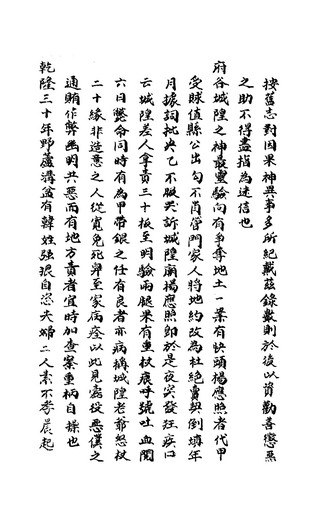 按舊志對因果神異事多所紀載茲錄數則於後以資勸善懲惡
之助不得盡指為迷信也
府谷城隍之神最靈驗向有爭奪地土一案有快頭楊應照者代甲
受賕值縣公出勾不肖管門家人將地約改為杜絕賣契倒填年
月據詞批央乙不服哭訴城隍廟楊應照即於是夜突發狂疾口
云城隍差人拿責三十板至明驗兩腿果有重杖痕呼號吐血閱
六日斃命同時有為甲帶銀之任有良者亦病稱城隍老爺怒杖
二十緣非造意之人從寬免死舁至家病痊以此見蠹役惡僕之
通賄作弊幽明共惡而有地方責者宜時加查察重柄自操也
乾隆三十年野蘆溝岔有韓姓強狠自恣夫婦二人素不孝晨起